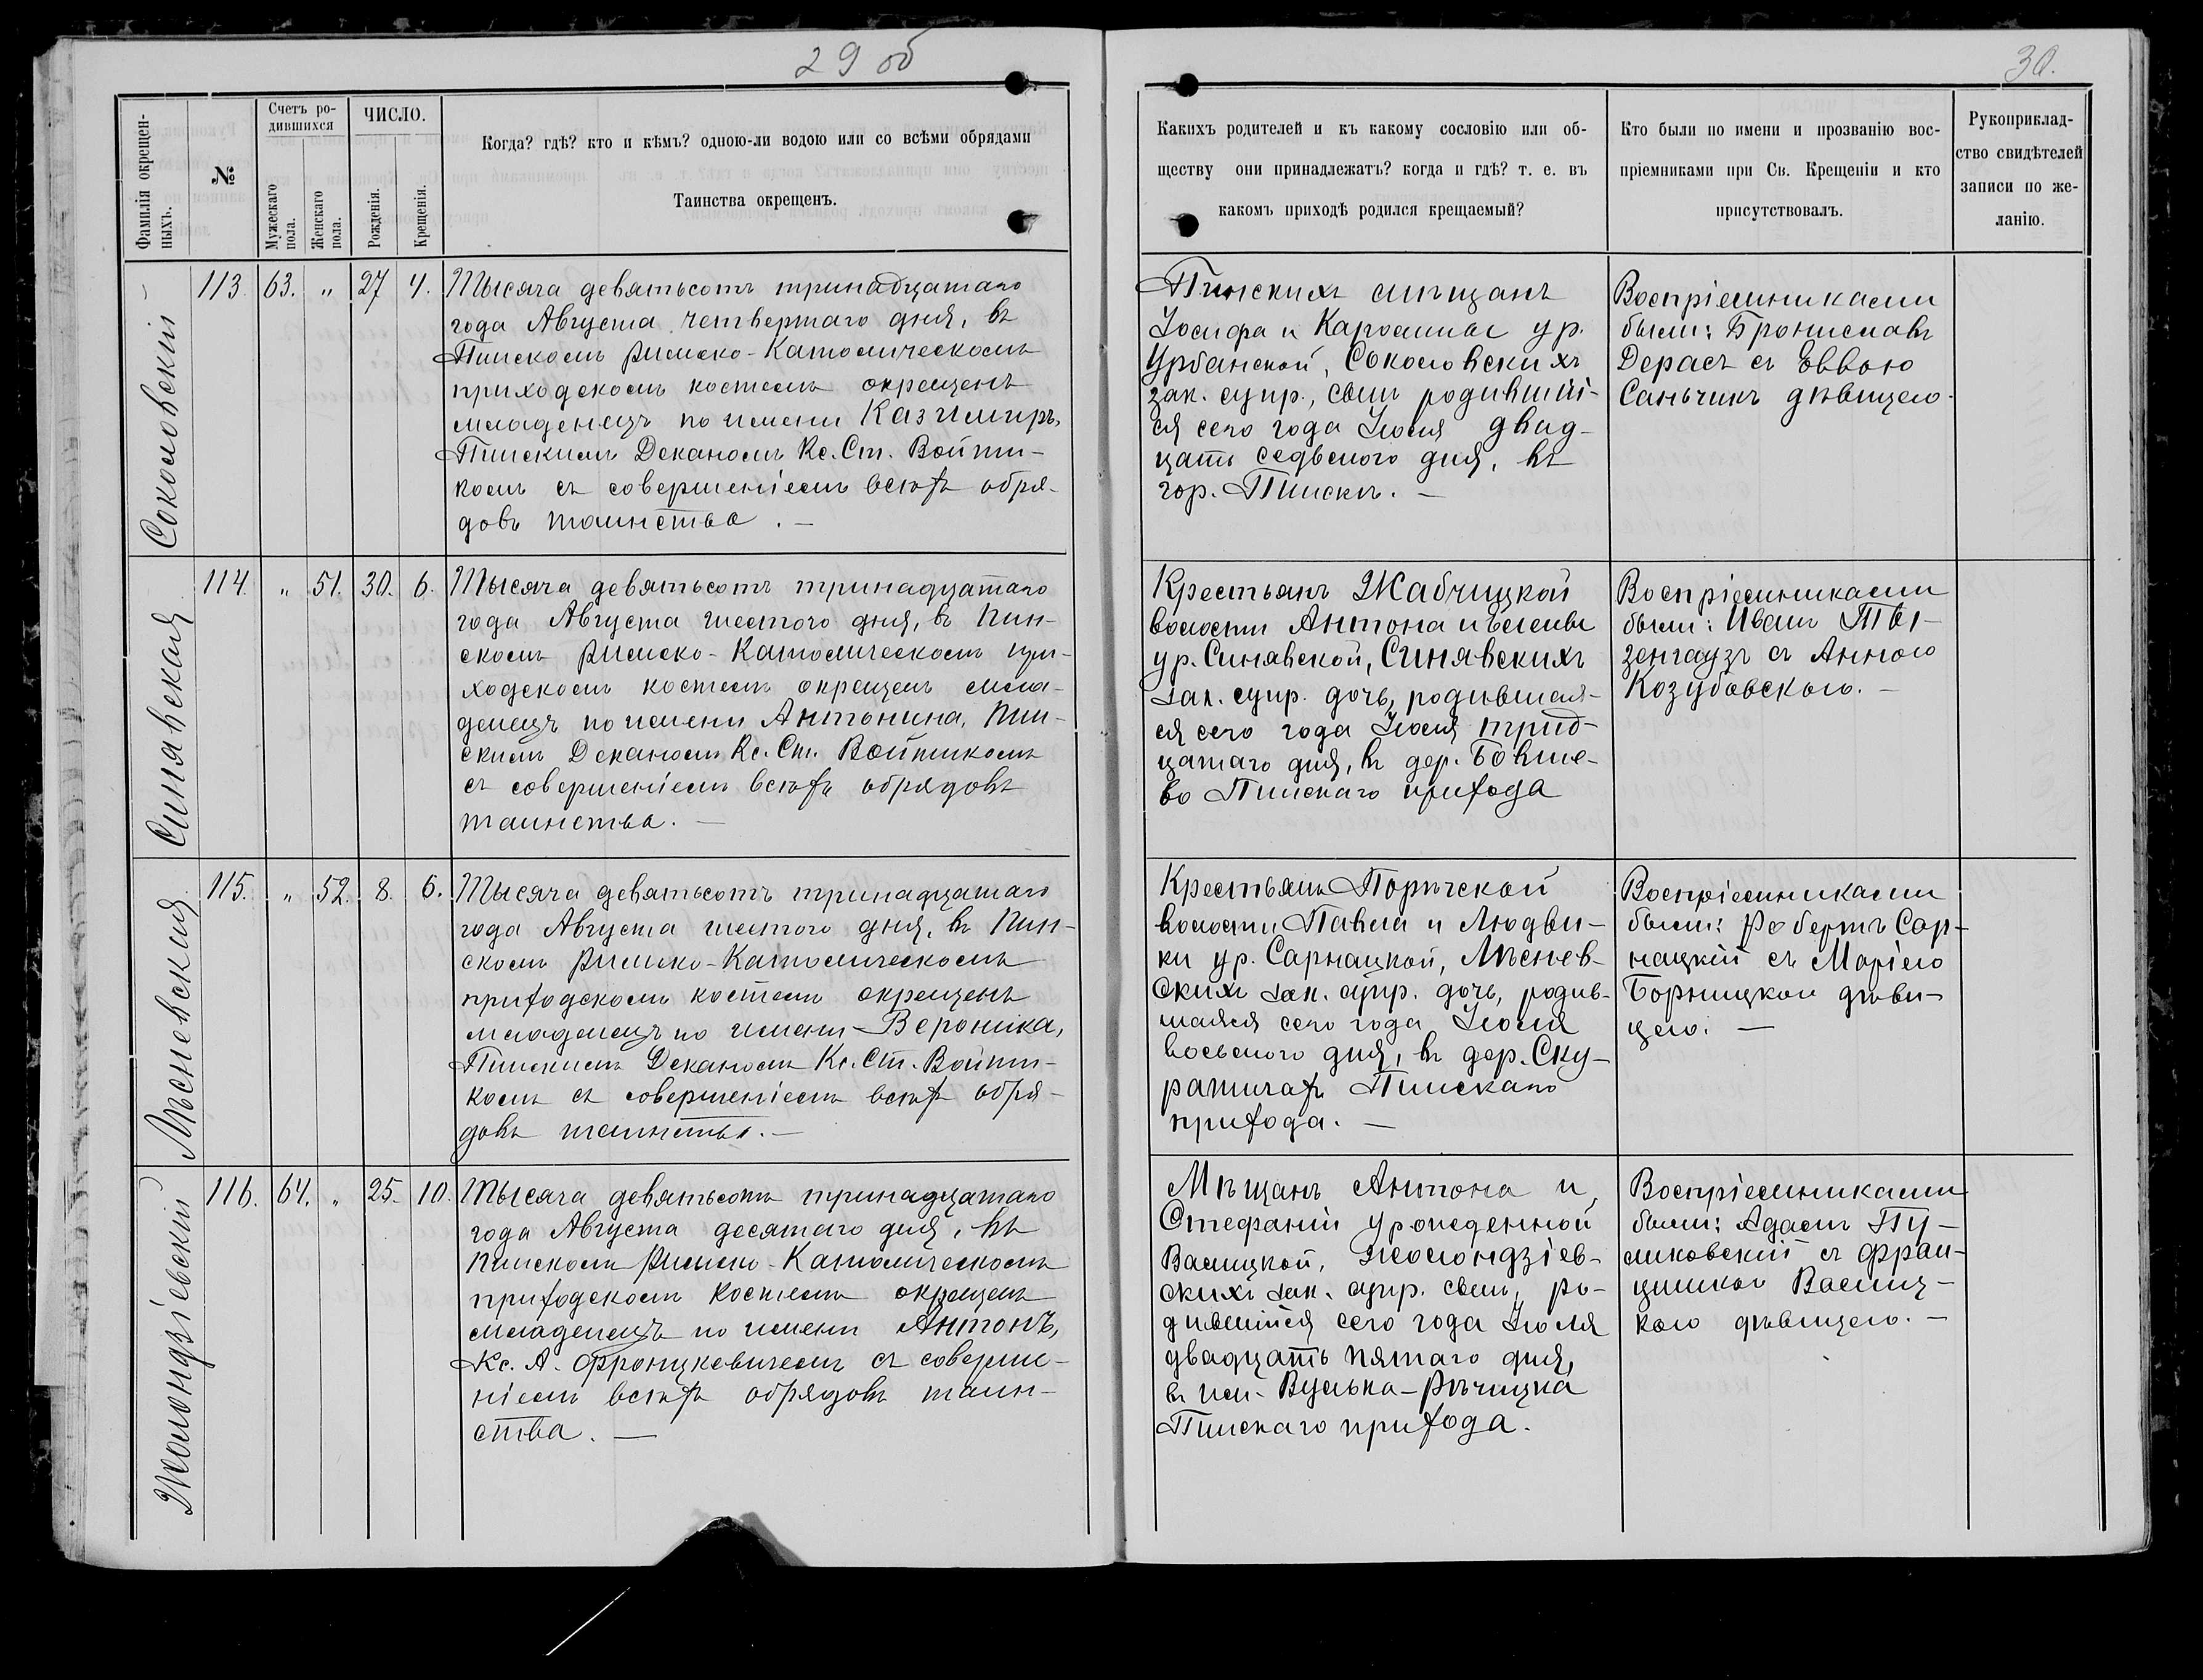 29 об
30.
Фамилія окрещен-
ныхъ.
№
Счетъ ро-
дившихся
Мужескаго
пола.
Женскаго
пола.
ЧИСЛО.
Рожденія.
Крещенія.
Когда? гдѣ? кто и кѣмъ? одною-ли водою или со всѣми обрядами
Таинства окрещенъ.
Какихъ родителей и къ какому сословію или об-
ществу они принадлежатъ? когда и гдѣ? т. е. въ
какомъ приходѣ родился крещаемый?
Кто были по имени и прозванію вос-
пріемниками при Св. Крещеніи и кто
присутствовалъ.
Рукоприклад-
ство свидѣтелей
записи по же-
ланію.
Соколовскій
113. 63. „ 27 4.
Тысяча девятьсотъ тринадцатаго
года Августа четвертаго дня, въ
Пинскомъ римско-католическомъ
приходскомъ костелѣ окрещенъ
младенецъ по имени Казимиръ,
Пинскимъ Деканомъ Кс. Ст. Войти-
комъ съ совершеніемъ всѣхъ обря-
довъ таинства. —
Пинскихъ мѣщанъ
Іосифа и Каролины ур.
Урбанской, Соколовскихъ
зак. супр., сынъ родившій-
ся сего года Іюля двад-
цать седьмого дня, въ
гор. Пинскѣ. —
Воспріемниками
были: Брониславъ
Дерасъ съ Еввою
Саньчикъ дѣвицею.
Синявская
114. „ 51. 30. 6.
Тысяча девятьсотъ тринадцатаго
года Августа шестого дня, въ Пин-
скомъ римско-католическомъ при-
ходскомъ костелѣ окрещенъ мла-
денецъ по имени Антонина, Пин-
скимъ Деканомъ Кс. Ст. Войтикомъ
съ совершеніемъ всѣхъ обрядовъ
таинства. —
Крестьянъ Жабчицкой
волости Антона и Елены
ур. Синявской, Синявскихъ
зак. супр. дочь, родившая-
ся сего года Іюля трид-
цатаго дня, въ дер.
Пинскаго прихода
Воспріемниками
были: Иванъ Ты-
зенгаузъ съ Анною
Козубовскою. —
Мѣсневския
115. „ 52. 8. 6.
Тысяча девятьсотъ тринадцатаго
года Августа шестого дня, въ Пин-
скомъ римско-католическомъ
приходскомъ костелѣ окрещенъ
младенецъ по имени Вероника,
Пинскимъ Деканомъ Кс. Ст. Войти-
комъ съ совершеніемъ всѣхъ обря-
довъ таинства. —
Крестьянъ Порѣчской
волости Павла и Людви-
ки ур. Сарнацкой, Мѣснев-
скихъ зак. супр. дочь, родив-
шаяся сего года Іюля
восьмого дня, въ дер. Ску-
ратичахъ Пинскаго
прихода. —
Воспріемниками
были: Робертъ Сар-
нацкій съ Маріею
Борницкой дѣви-
цею. —
Жолондзіевскій
116. 64. „ 25. 10.
Тысяча девятьсотъ тринадцатаго
года Августа десятаго дня, въ
Пинскомъ римско-католическомъ
приходскомъ костелѣ окрещенъ
младенецъ по имени Антонъ,
Кс. А. Францкевичемъ съ соверше-
ніемъ всѣхъ обрядовъ таин-
ства. —
Мѣщанъ Антона и
Стефаніи урожденной
Валицкой, Жолондзіев-
скихъ зак. супр. сынъ, ро-
дившійся сего года Іюля
двадцать пятаго дня,
въ им. Вулька-Рѣчицка
Пинскаго прихода.
Воспріемниками
были: Адамъ Пу-
ликовскій съ Фран-
цишкою Валиц-
кою дѣвицею. —